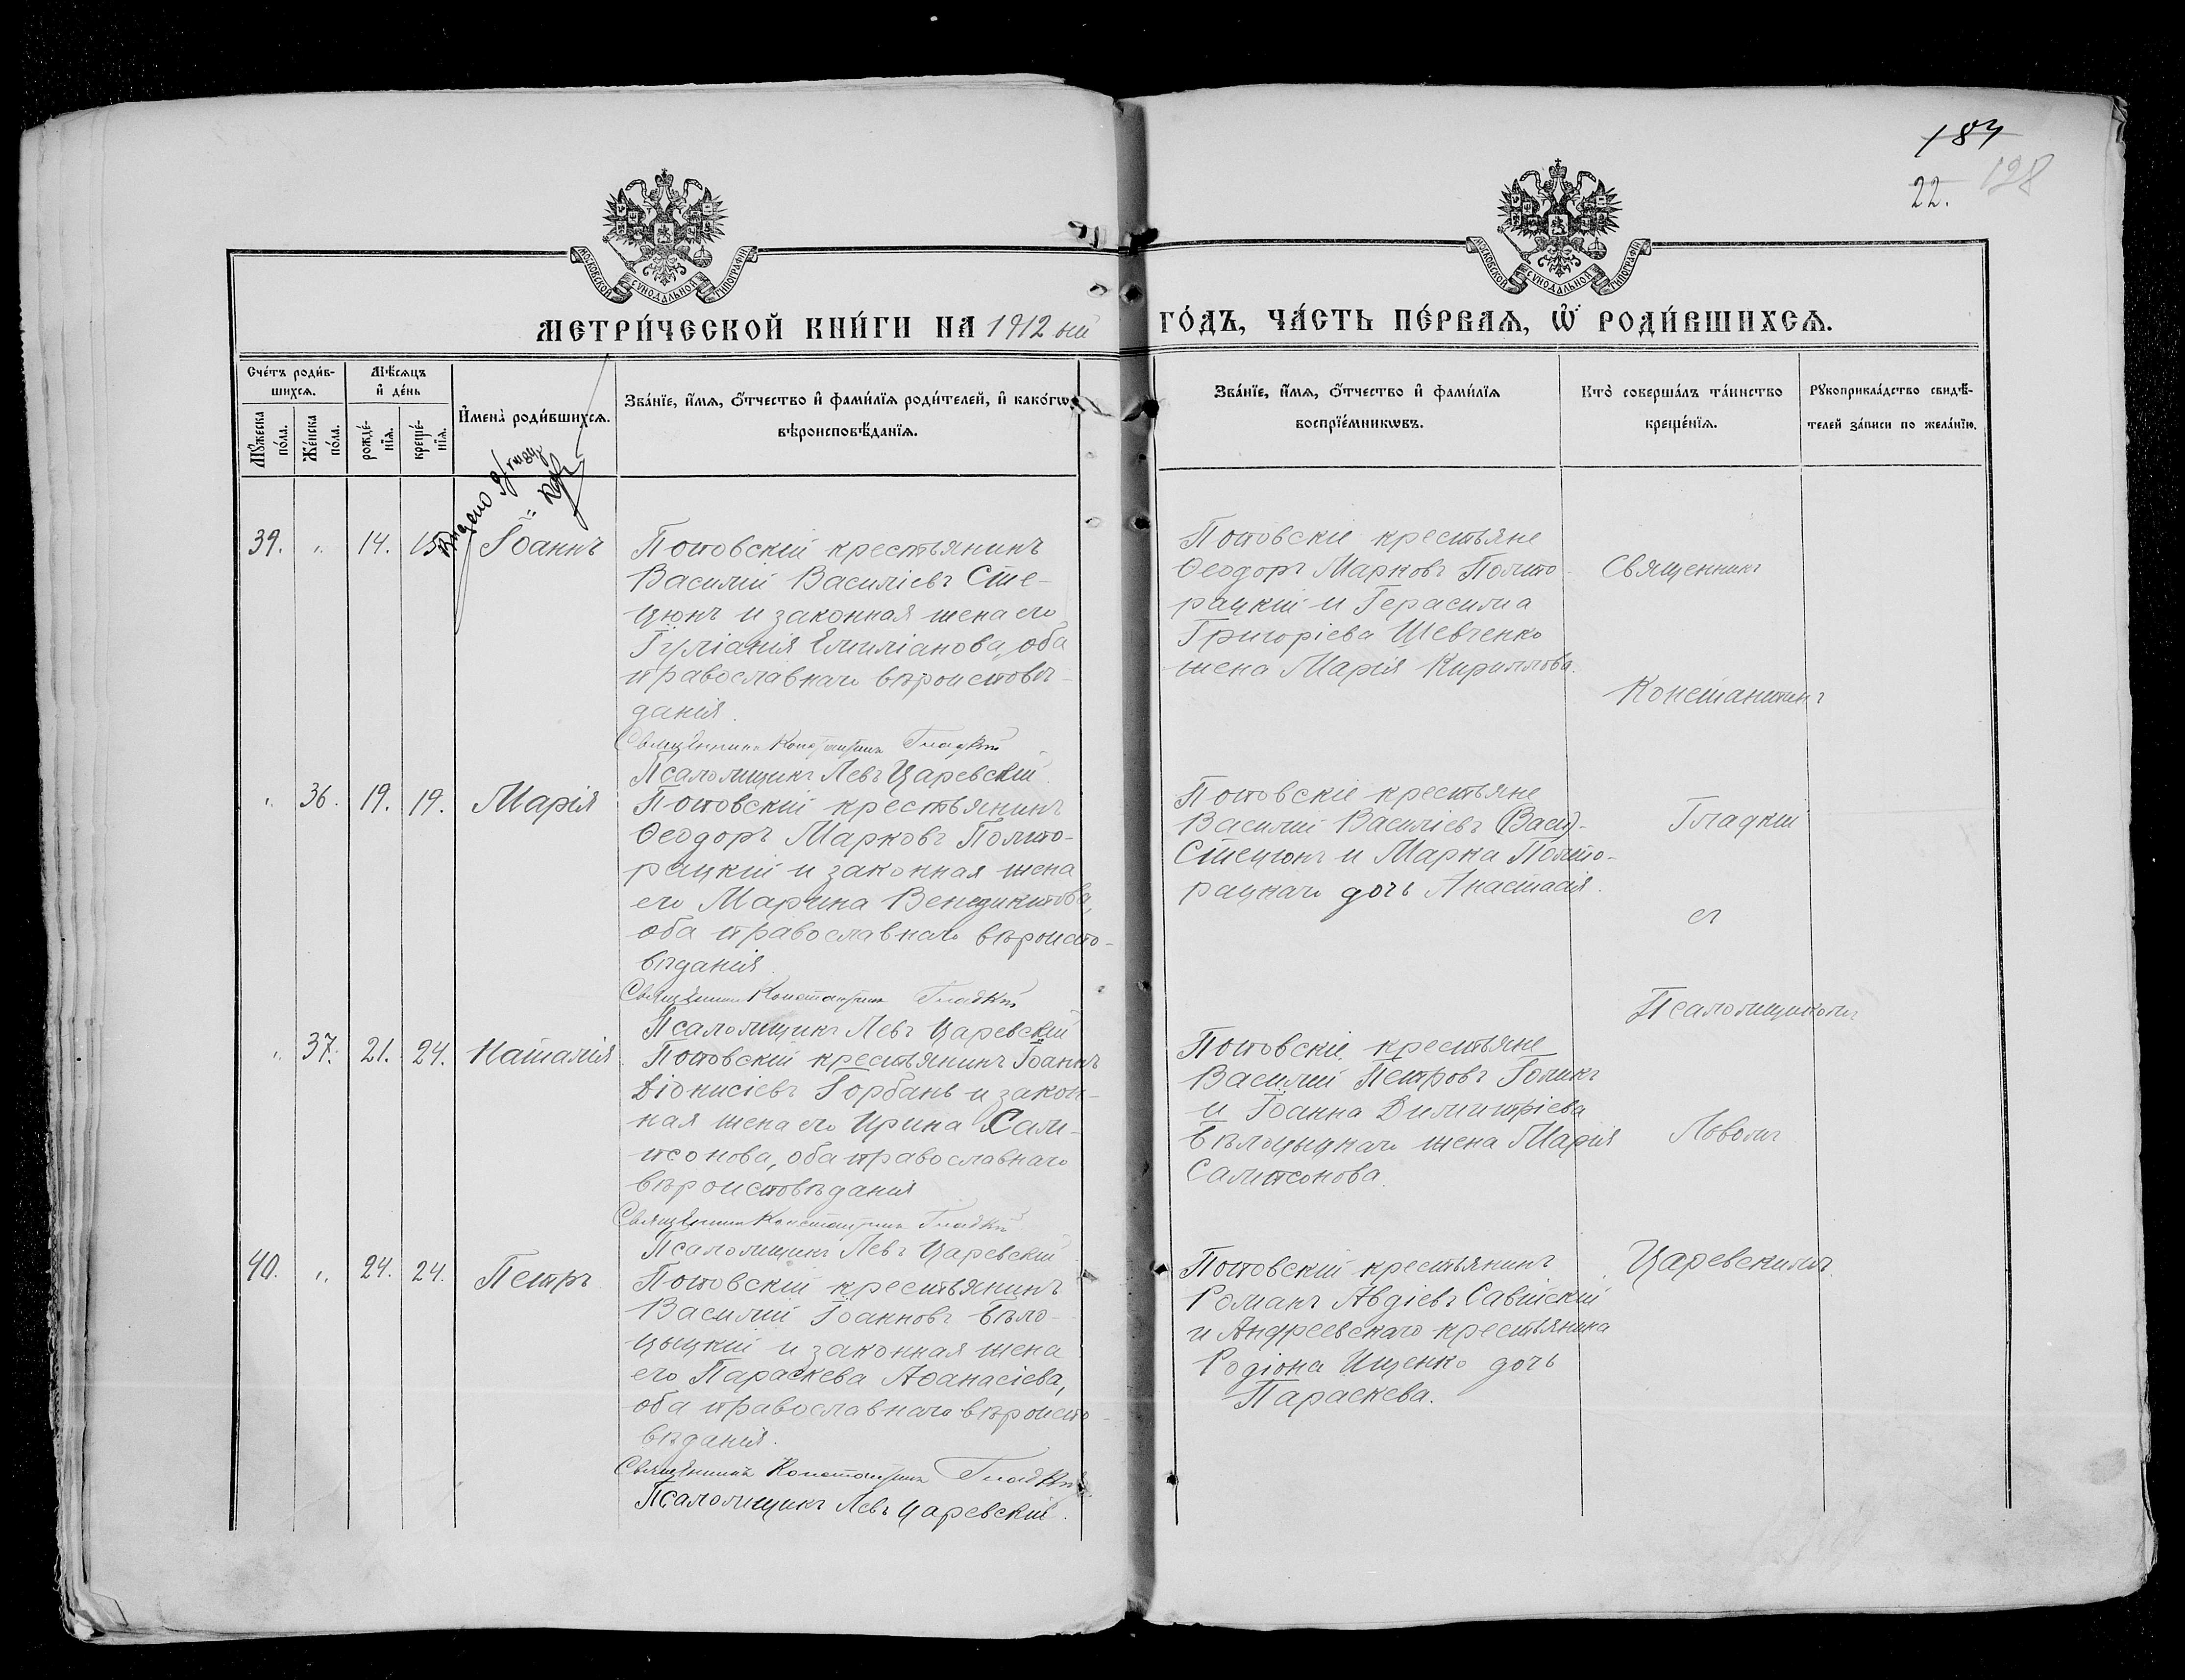 184
22.
128
МОСКОВСКОЙ СѴНОДАЛЬНОЙ ТИПОГРАФІИ
МОСКОВСКОЙ СѴНОДАЛЬНОЙ ТИПОГРАФІИ
МЕТРИ́ЧЕСКОЙ КНИ́ГИ НА 1912 ый
ГО́ДЪ, ЧА́СТЬ ПЕ́РВАѦ, Ѡ҆ РОДИ́ВШИХСѦ.
Сче́тъ роди́в-
шихсѧ.
Мѣ́сѧцъ
и҆ де́нь
Мꙋ́жеска
по́ла.
Же́нска
по́ла.
рожде́-
нїѧ.
креще́-
нїѧ.
И҆мена̀ роди́вшихсѧ.
Зва́нїе, и҆́мѧ, ѻ҆́тчество и҆ фами́лїѧ роди́телей, и҆ како́гѡ
вѣроисповѣ́данїѧ.
Зва́нїе, и҆́мѧ, ѻ҆́тчество и҆ фами́лїѧ
воспрїе́мникѡвъ.
Кто̀ соверша́лъ та́инство
креще́нїѧ.
Рꙋкоприкла́дство свидѣ́-
телей за́писи по жела́нїю.
39. „ 14. 15. Іоаннъ
Поповскій крестьянинъ
Василій Василіевъ Сте-
цюнъ и законная жена его
Іуліанія Емиліанова, оба
православнаго вѣроисповѣ-
данія.
Священникъ Константинъ Гладкій
Псаломщикъ Левъ Царевскій
Поповскіе крестьяне
Ѳеодоръ Марковъ Полто-
рацкій и Герасима
Григоріева Шевченко
жена Марія Кириллова.
Священникъ
Константинъ
„ 36. 19. 19. Марія
Поповскій крестьянинъ
Ѳеодоръ Марковъ Полто-
рацкій и законная жена
его Марина Венедиктова,
оба православнаго вѣроиспо-
вѣданія.
Священникъ Константинъ Гладкій
Псаломщикъ Левъ Царевскій
Поповскіе крестьяне
Василій Василіевъ (Васил)-
Стецюнъ и Марка Полто-
рацкаго дочь Анастасія.
Гладкій
съ
Псаломщикомъ
„ 37. 21. 24. Наталія
Поповскій крестьянинъ Іоаннъ
Діонисіевъ Горбань и закон-
ная жена его Ирина Сам-
псонова, оба православнаго
вѣроисповѣданія
Священникъ Константинъ Гладкій
Псаломщикъ Левъ Царевскій
Поповскіе крестьяне
Василій Петровъ Голикъ
и Іоанна Димитріева
Бѣлоцыцкаго жена Марія
Сампсонова.
Львомъ
40. „ 24. 24. Петръ
Поповскій крестьянинъ
Василій Іоанновъ Бѣло-
цыцкій и законная жена
его Параскева Аѳанасіева,
оба православнаго вѣроиспо-
вѣданія.
Священникъ Константинъ Гладкій
Псаломщикъ Левъ Царевскій.
Поповскій крестьянинъ
Романъ Авдіевъ Савійскій
и Андреевскаго крестьянина
Родіона Ищенко дочь
Параскева.
Царевскимъ.